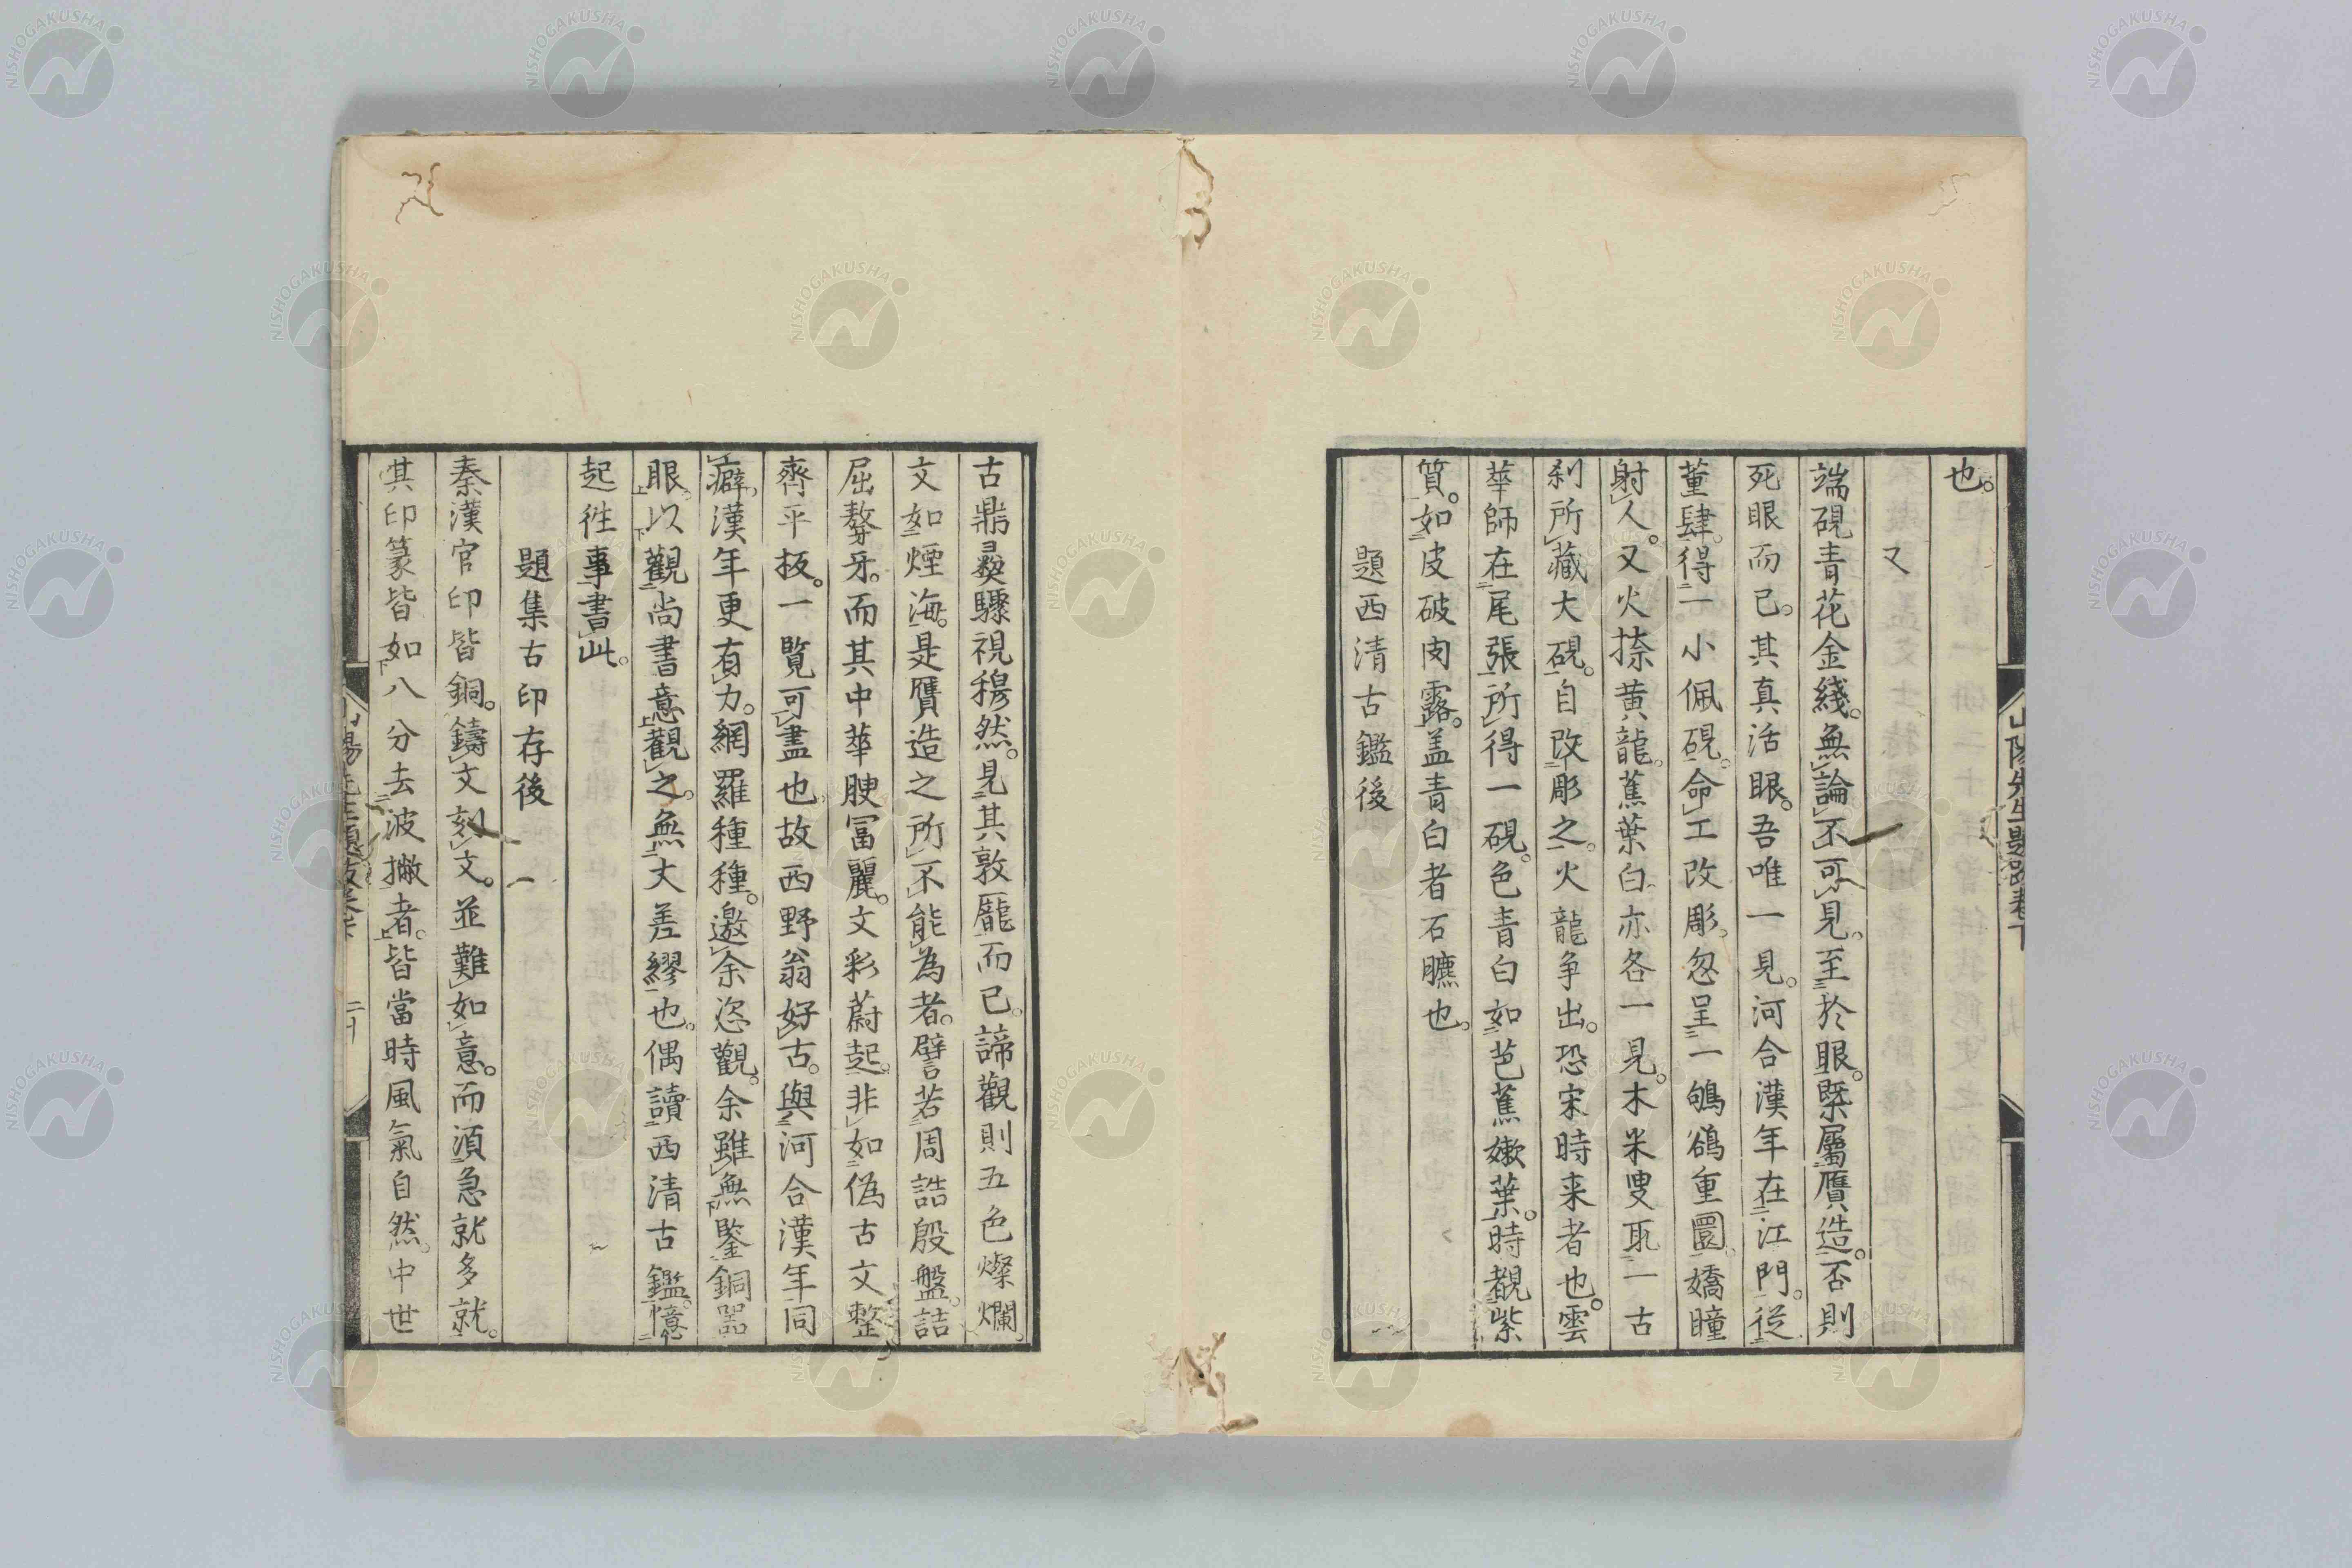 也。
又
端硯青花金綫。無論不可見。至於眼。槩屬贋造。否則
死眼而已。其真活眼。吾唯一見。河合漢年在江門。從
董肆得一小佩硯。命工改彫。忽呈一鴝鵒重圜。嬌瞳
射人。又火捺黄龍。蕉葉白。亦各一見。木米叟取一古
刹所藏大硯。自改彫之。火龍争出。恐宋時来者也。雲
華師在尾張所得一硯。色青白如芭蕉嫩葉。時覩紫
質。如皮破肉露。盖青白者石臕也。
題西清古鑑後
古鼎彝驟視穆然。見其敦厖而已。諦觀則五色燦爛。
文如煙海。是贋造之所不能為者。譬若周誥殷盤。詰
屈聱牙。而其中華腴冨麗。文彩蔚起。非如偽古文整
齊平板。一覧可盡也。故西野翁好古。與河合漢年同
癖。漢年更有力。網羅種種。邀余恣觀。余雖無鑒銅器
眼。以觀尚書意觀之。無大差繆也。偶讀西清古鑑。憶
起徃事書此。
題集古印存後
秦漢官印皆銅。鑄文刻文。並難如意。而湏急就多就。
其印篆皆如八分去波撇者。皆當時風氣自然。中世
山陽先生題跋卷下
NISHOGAKUSHA